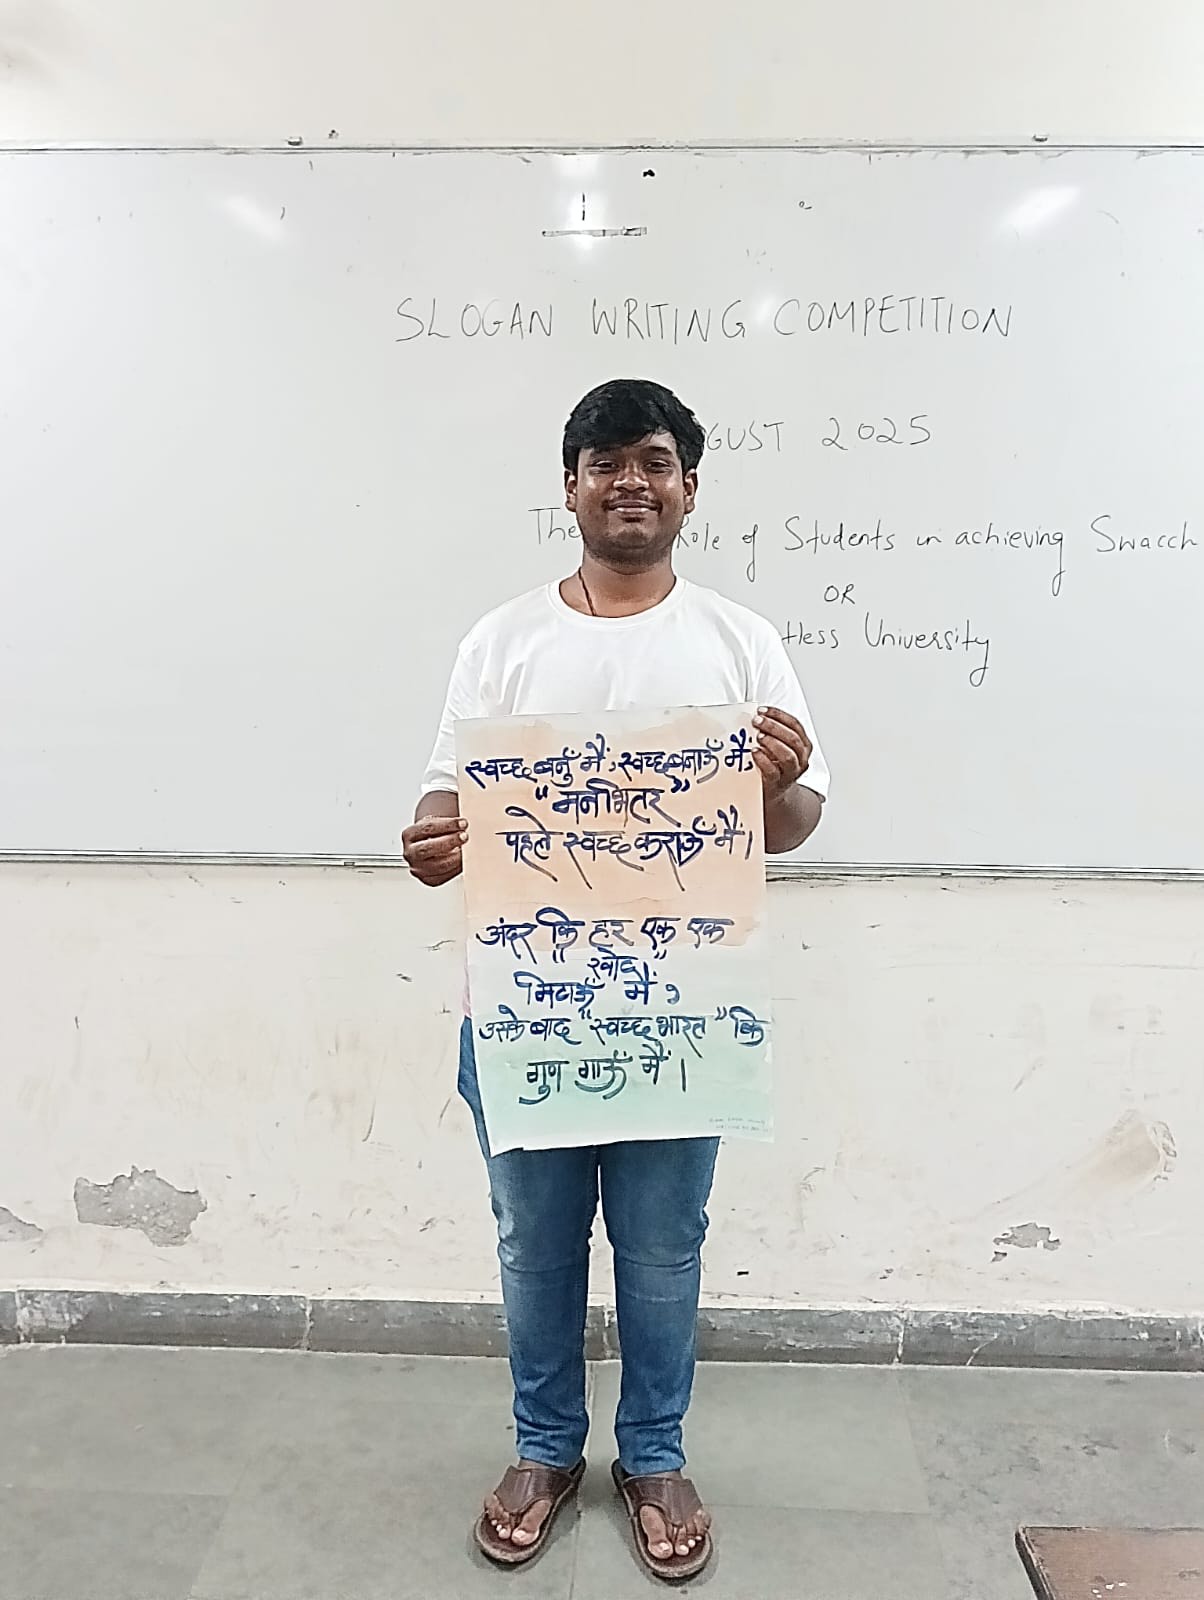 SLOGAN WRITING COMPETITION
GUST 2025
The Role of Students in achieving Swacch
OR
tless University
स्वच्छ बनुँ मैं, स्वच्छ बनाऊँ मैं,
"मनभितर"
पहले स्वच्छ कराऊँ मैं।
अंदर कि हर एक एक
"खोट"
मिटाऊँ मैं,
उसके बाद "स्वच्छ भारत" कि
गुण गाऊँ मैं।